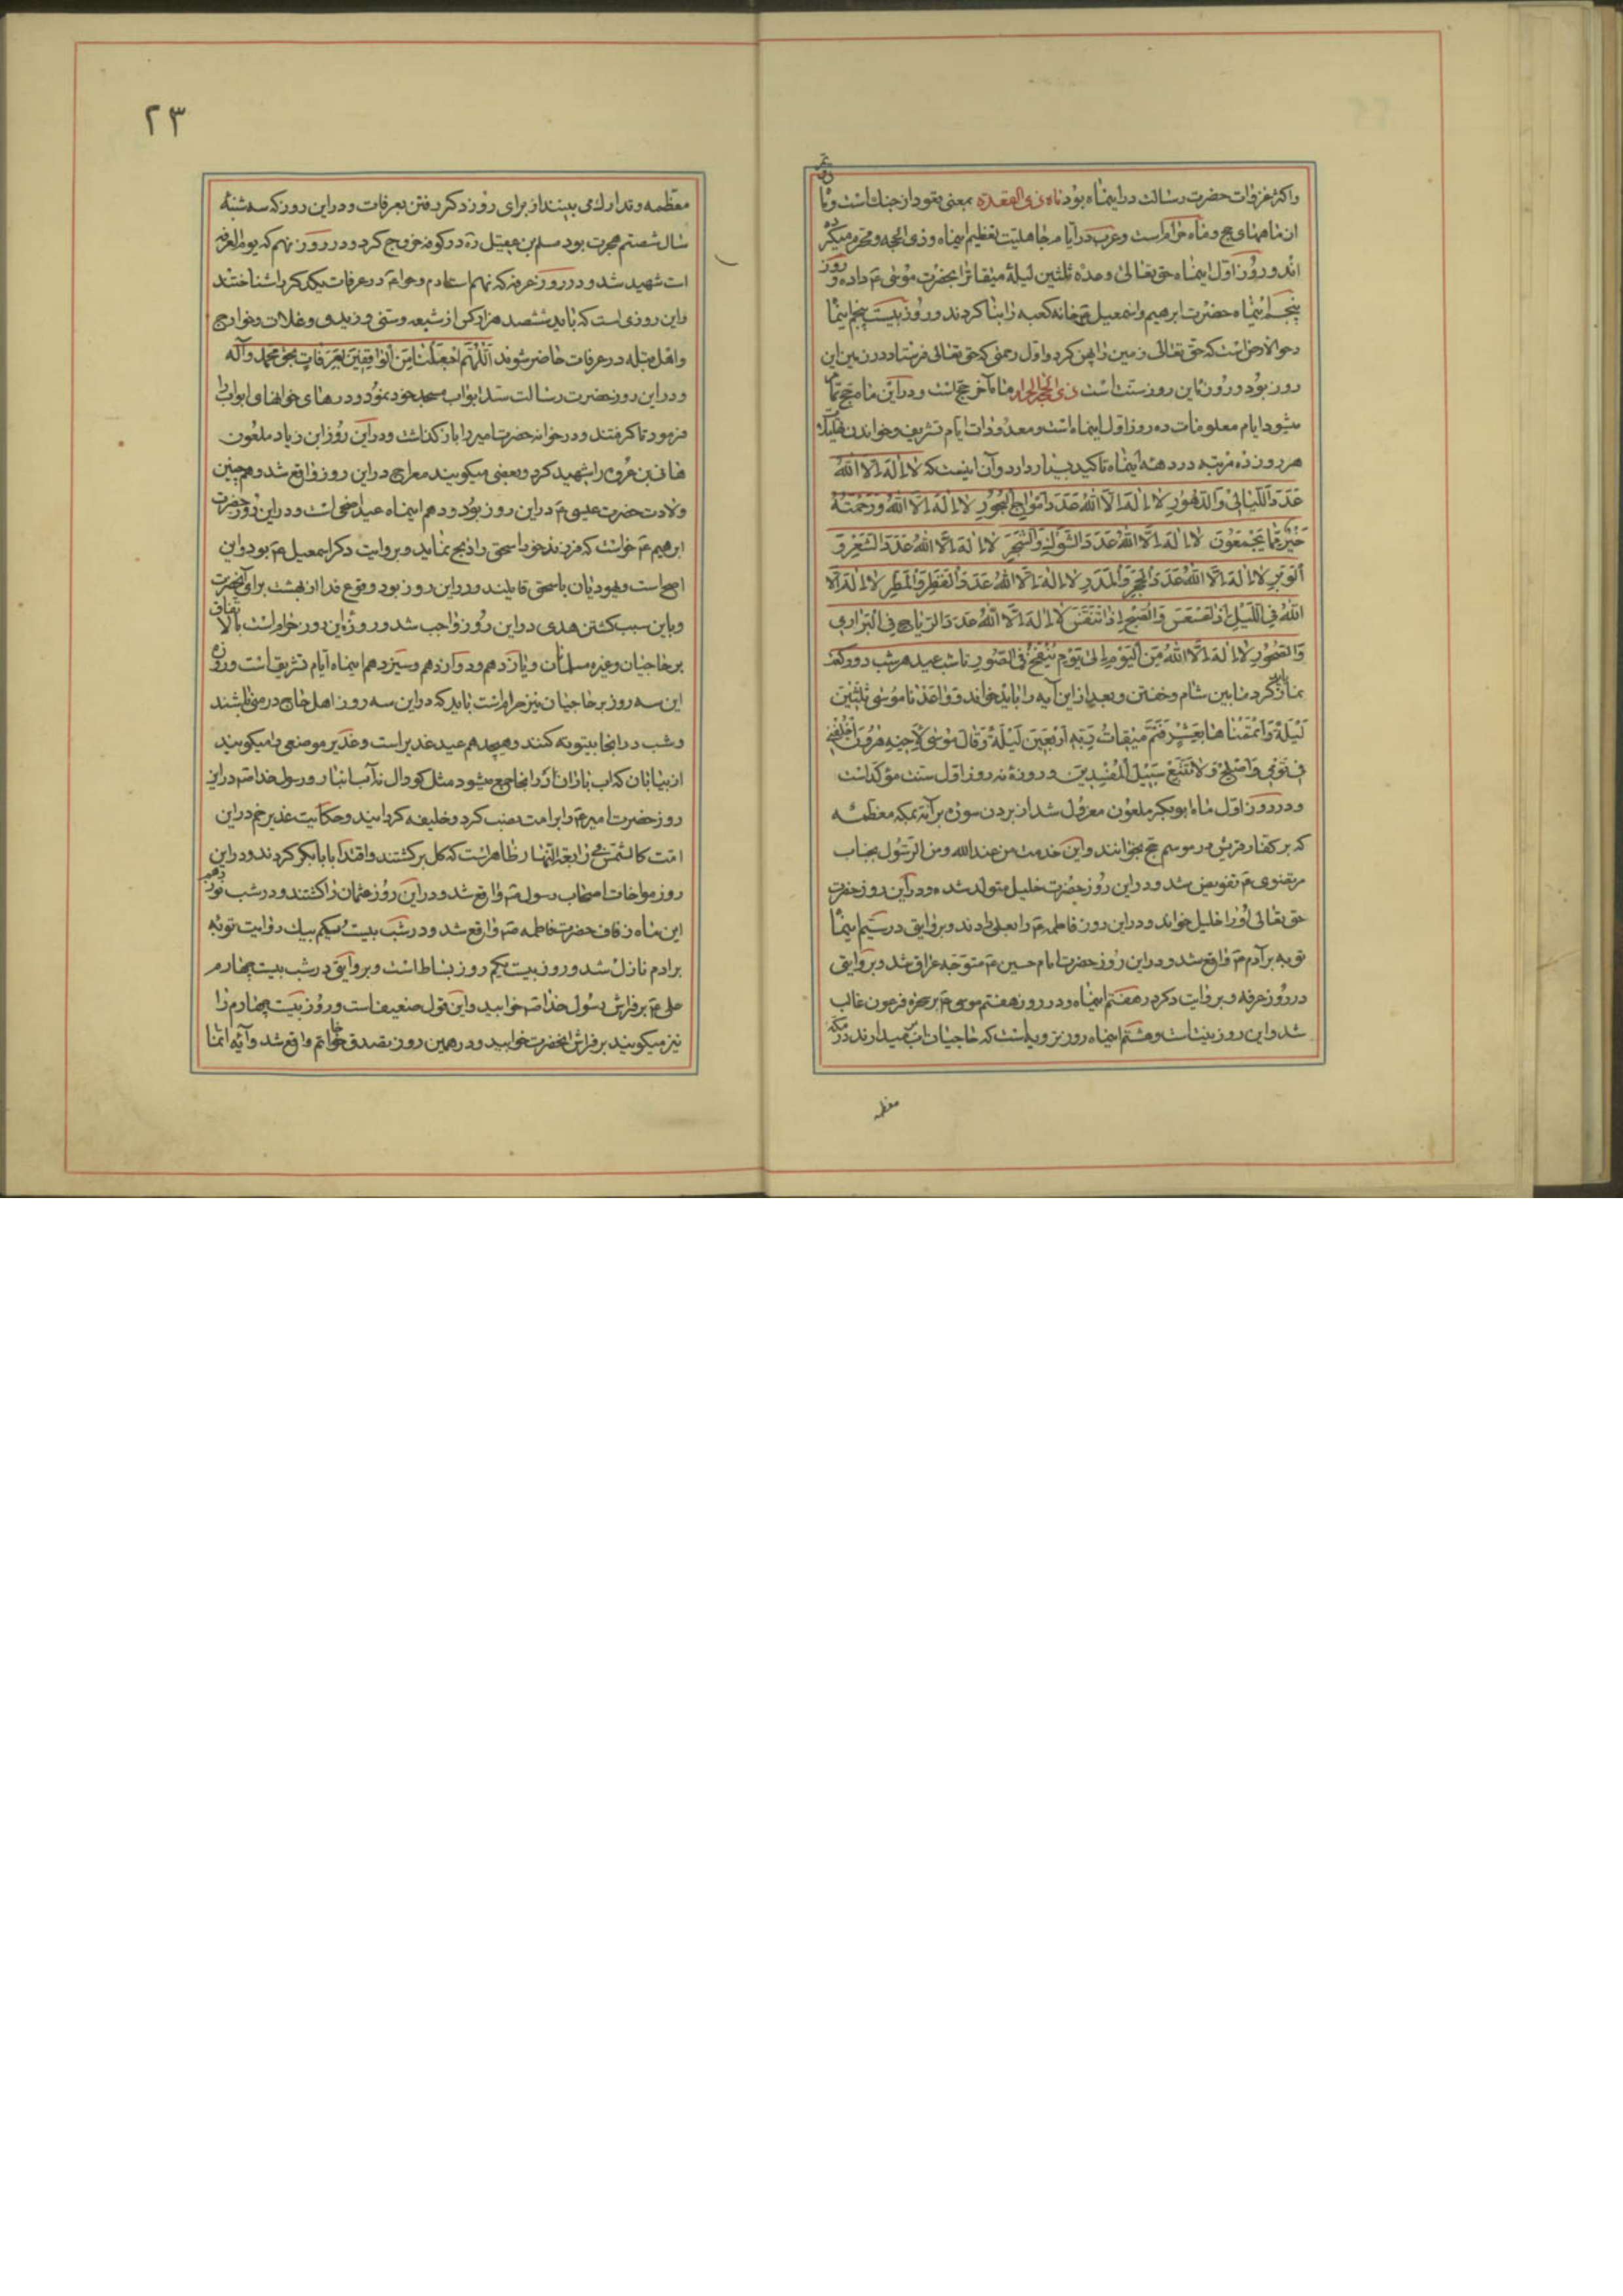 واکثر غزوات حضرت رسالت در اینماه بود ماه ذی القعده بمعنی قعود از جنک است و تا
ان ماههای حج و ماه حرام است و عرب در ایام جاهلیت تعظیم اینماه و ذی الحجه و محرم میکر
ده اند و روز اول اینماه حق تعالی وعده ثلثین لیلة میقاتا بحضرت موسی ع داده و روز
پنجم اینماه حضرت ابرهیم و اسمعیل ع خانه کعبه را بنا کردند و روز بیست پنجم اینما
دحو الارض است که حق تعالی زمین را پهن کرد و اول رحمتی که حق تعالی فرستاد در زمین این
روز بود و روزه این روز سنت است ذی الحجه الحرام ماه آخر حج است و در این ماه حج تمام
میشود ایام معلومات ده روز اول اینماه است و معدودات ایام تشریق و خواندن تهلیلات
هر روز ده مرتبه در دهه اینماه تاکید بسیار دارد و آن اینست که لا اله الا الله
عدد اللیالی والدهور لا اله الا الله عدد امواج البحور لا اله الا الله ورحمته
خیر مما یجمعون لا اله الا الله عدد الشوک والشجر لا اله الا الله عدد الشعر و
الوبر لا اله الا الله عدد الحجر والمدر لا اله الا الله عدد القطر والمطر لا اله الا
الله فی اللیل اذا عسعس والصبح اذا تنفس لا اله الا الله عدد الریاح فی البراری
والصخور لا اله الا الله من الیوم الی یوم ینفخ فی الصور تا شب عید هر شب دو رکعت
نماز باید کرد ما بین شام و خفتن و بعد از این آیه را باید خواند و واعدنا موسی ثلثین
لیلة واتممناها بعشر فتم میقات ربه اربعین لیلة وقال موسی لاخیه هرون اخلفنی
فی قومی واصلح ولا تتبع سبیل المفسدین و روزه نه روز اول سنت مؤکد است
و در روز اول ماه ابوبکر ملعون معزول شد از بردن سوره برآئة بمکه معظمه
که بر کفار قریش در موسم حج بخوانند و این خدمت من عند الله و من الرسول بجناب
مرتضوی ع تفویض شد و در این روز حضرت خلیل متولد شده و در این روز حضرت
حق تعالی او را خلیل خواند و در این روز فاطمه ع را بعلی دادند و بروایتی در ششم اینما
توبه بر آدم ع واقع شد و در این روز حضرت امام حسین ع متوجه عراق شد و بروایتی
در روز عرفه و بروایت دکر در هفتم اینماه و در روز هفتم موسی ع بر سحره فرعون غالب
شد و این روز زینت است و هشتم اینماه روز ترویه است که حاجیان آب میدارند در مکه
معظمه
۲۳
معظمه و تدارک می بینند از برای روز دکر رفتن بعرفات و در این روز که سه شنبه
سال شصتم هجرت بود مسلم بن عقیل ره در کوفه خروج کرد و در روز نهم که یوم العرفه
است شهید شد و در روز عرفه که نهم است آدم و حوا ع در عرفات یکدیکر را شناختند
و این روزی است که باید ششصد هزار کس از شیعه و سنی و زیدی و غلات و خوارج
واهل قبله در عرفات حاضر شوند اللهم اجعلنا من الواقفین بعرفات بحق محمد و آله
و در این روز حضرت رسالت سد ابواب مسجد خود نمود و درهای خوانهای ابواب را
فرمود تا کرفتند و در خوانه حضرت امیر را باز کذاشت و در این روز ابن زیاد ملعون
هانی بن عروه را شهید کرد و بعضی میکویند معراج در این روز واقع شد و همچنین
ولادت حضرت عیسی ع در این روز بود و دهم اینماه عید اضحی است و در این روز حضرت
ابرهیم ع خواست که فرزند خود اسحق را ذبح نماید و بروایت دکر اسمعیل ع بود و این
اصح است و یهودیان باسحق قایلند و در این روز بود وقوع فدا از بهشت برای آنحضرت
و باین سبب کشتن هدی در این روز واجب شد و روزه این روز حرام است بالاتفاق
بر حاجیان و غیره مسلمانان و یازدهم و دوازدهم و سیزدهم اینماه ایام تشریق است و روزه
این سه روز بر حاجیان نیز حرام است باید که در این سه روز اهل حاج در منی باشند
و شب در انجا بیتوته کنند و هیجدهم عید غدیر است و غدیر موضعی را میکویند
از بیابان که اب باران در انجا جمع میشود مثل کودال ته آسیابها و رسول خدا ص در این
روز حضرت امیر ع را بر امت نصب کرد و خلیفه کردانید و حکایت غدیر خم در این
امت کالشمس فی رابعة النهار ظاهر است که کل برکشتند و اقتدا بابا بکر کردند و در این
روز مواخات اصحاب رسول ص واقع شد و در این روز عثمان را کشتند و در شب نوزدهم
این ماه زفاف حضرت فاطمه ص واقع شد و در شب بیست یکم بیک روایت توبه
برادم نازل شد و روز بیست یکم روز بساط است و بروایتی در شب بیست چهارم
علی ع بر فراش رسول خدا ص خوابید و این قول ضعیف است و روز بیست چهارم را
نیز میکویند بر فراش انحضرت خوابید و در همین روز تصدق خاتم واقع شد و آیه انما